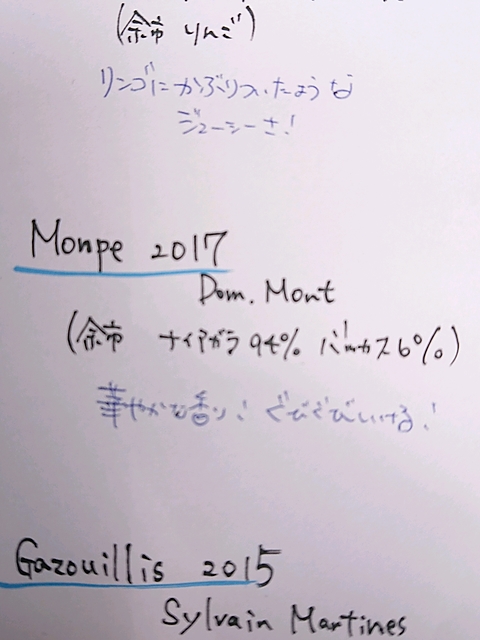 (余市 りんご)
リンゴにかぶりついたような
ジューシーさ!
Monpe 2017
Dom. Mont
(余市 ナイアガラ 94% バッカス 6%)
華やかな香り! ぐびぐびいける!
Gazouillis 2015
Sylvain Martines